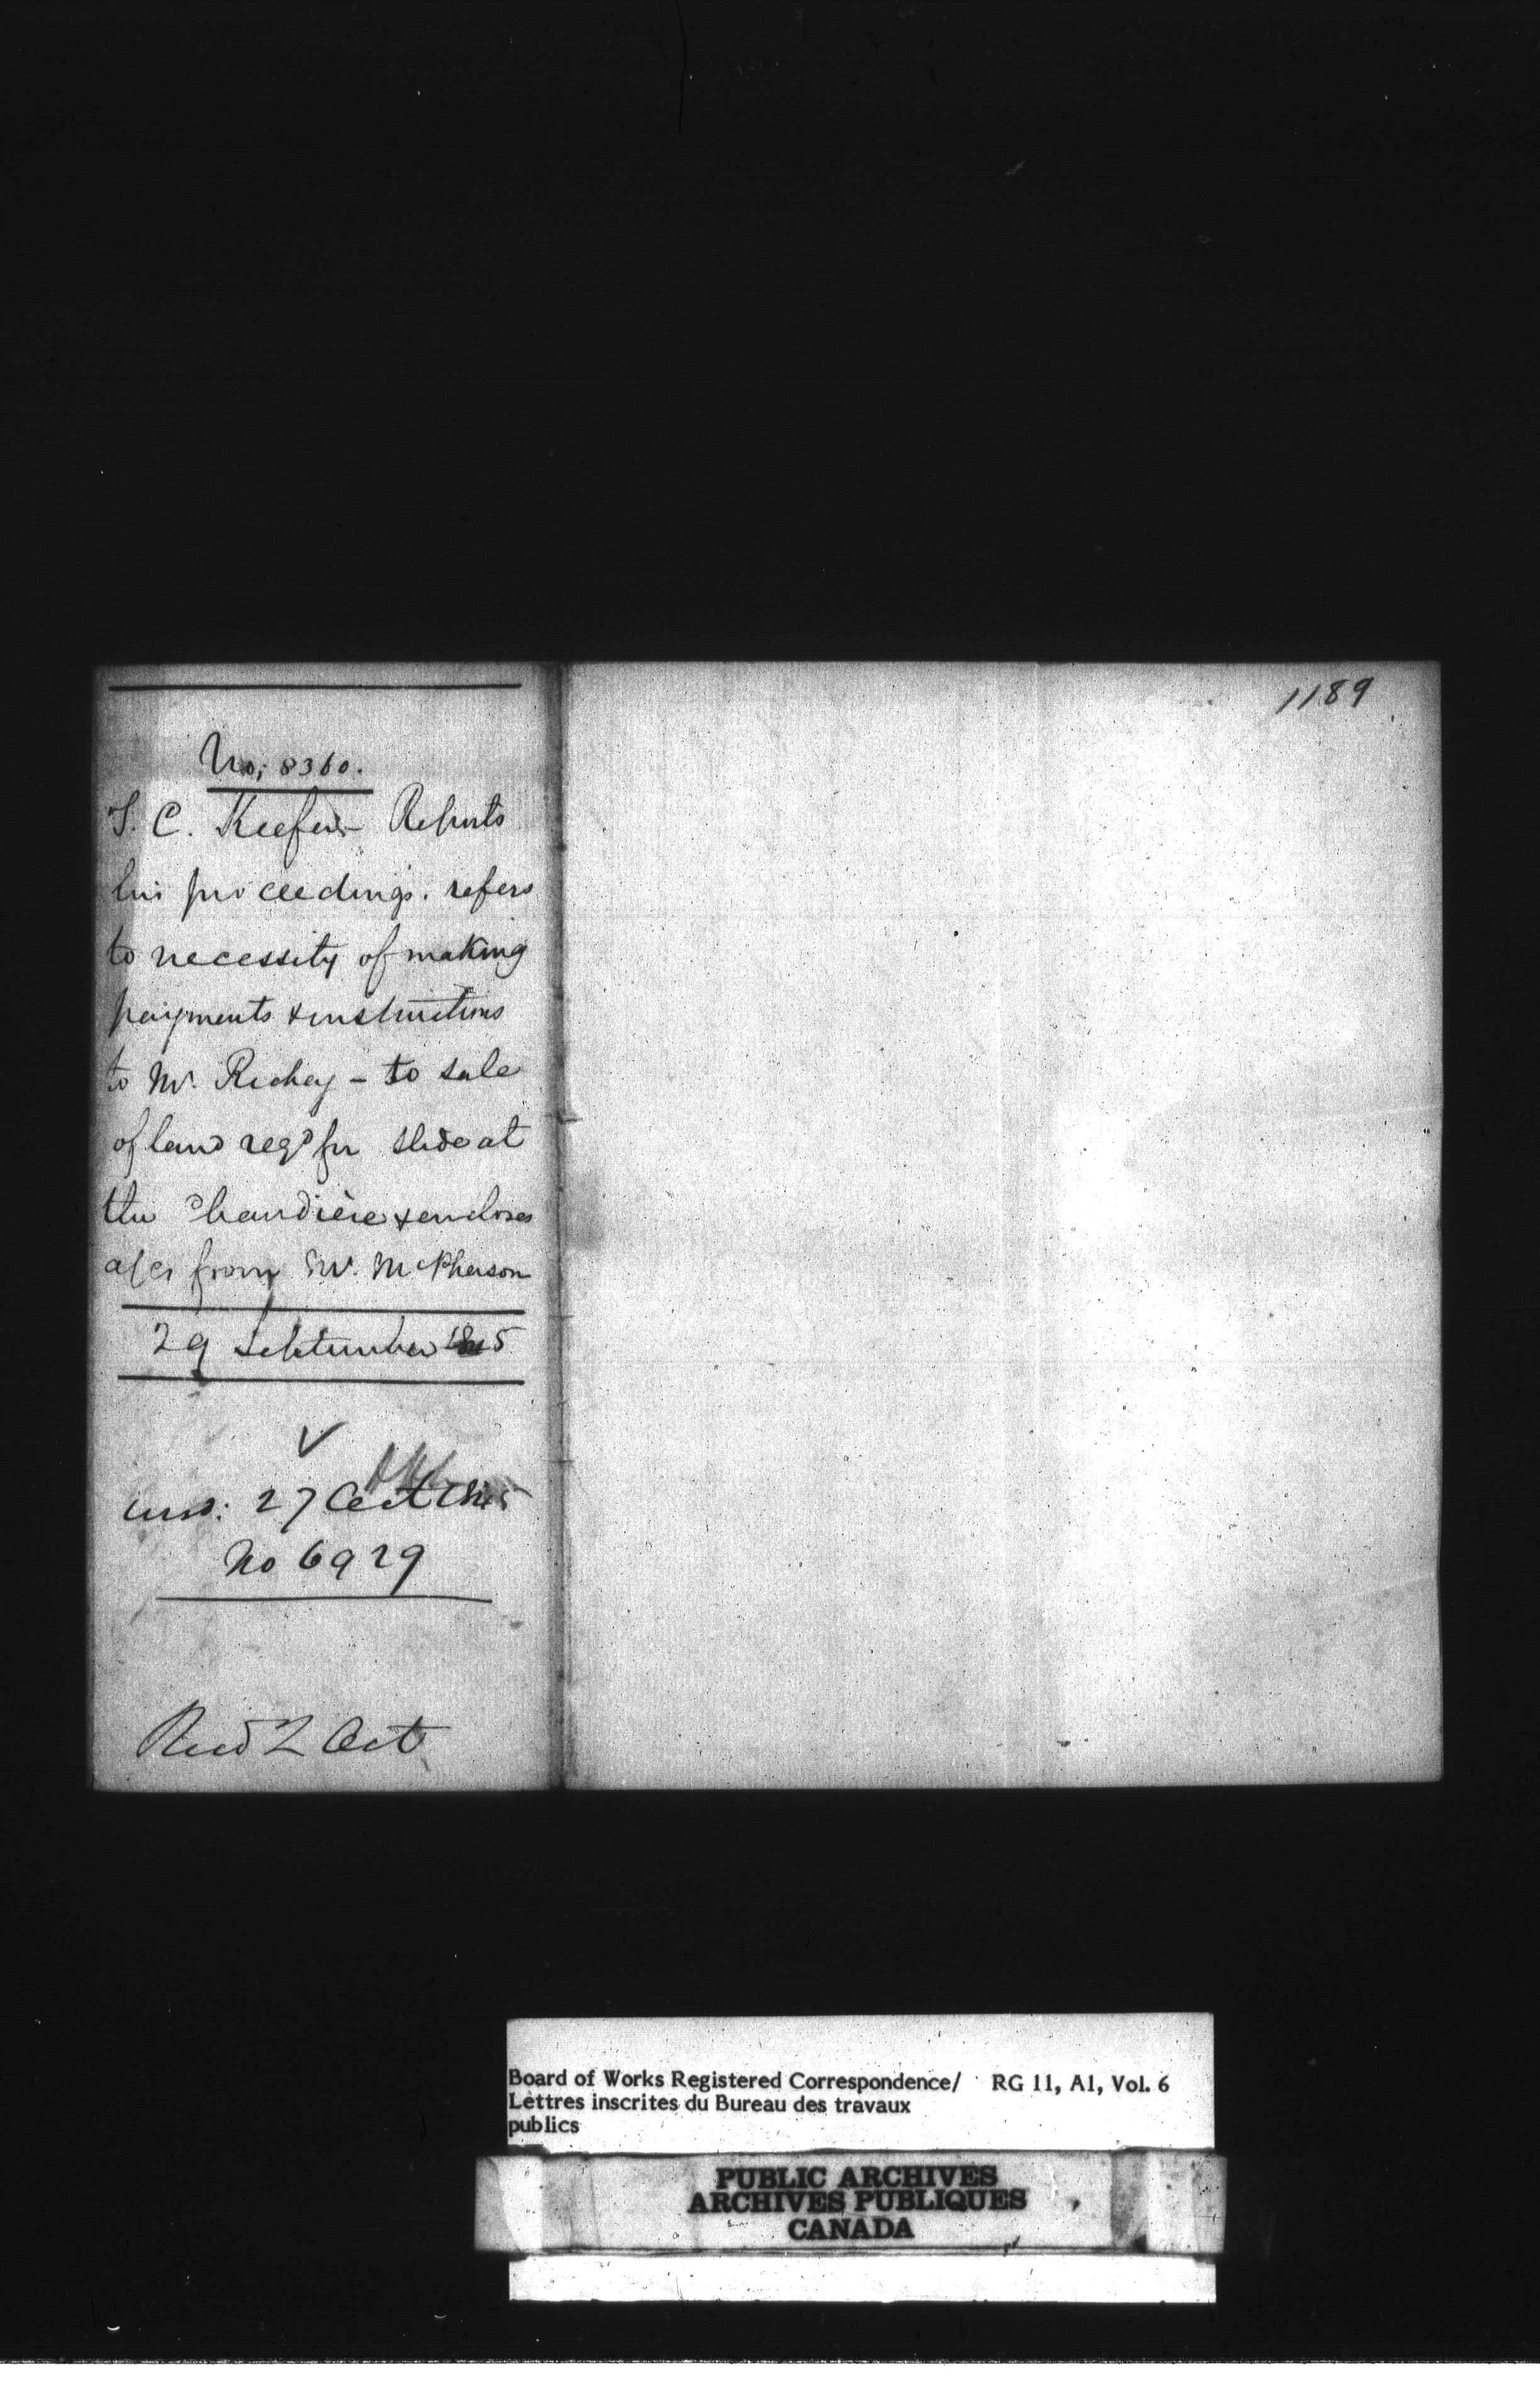 1189
No; 8360.
T. C. Keefer - Reports
his proceedings. refers
to necessity of making
payments & instructions
to Mr. Richey - to sale
of land reqd for slide at
the Chaudière & encloses
a/cs from Mr. McPherson
29 September 1845
V
27 Oct 1845
No 6929
Recd 2 Oct
Board of Works Registered Correspondence/ RG 11, A1, Vol. 6
Lettres inscrites du Bureau des travaux
publics
PUBLIC ARCHIVES
ARCHIVES PUBLIQUES
CANADA